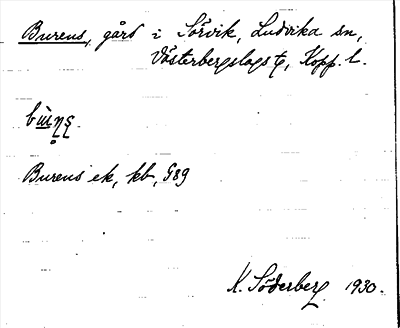 Burens, gård i Sörvik, Ludvika sn,
Västerbergslags tg, Kopp. l.
Burens ek, kb, 989
K. Söderberg 1930.